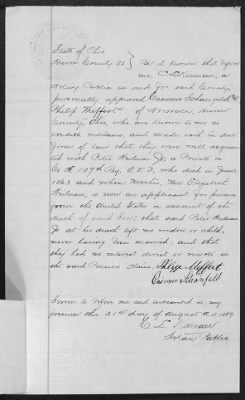 State of Ohio
Huron County SS } Be it known that before
me, C. L. Merriam, a
Notary Public in and for said County,
personally appeared Casimir Schonfield &
Philip Meffert of Norwalk, Huron
County, Ohio, who are known to me as
credible witnesses, and made oath in due
form of law that they were well acquain
ted with Peter Heilman Jr, a Private in
Co. H 107th Reg. O.V.I., who died in June
1863 and whose Mother, Elizabeth
Heilman, is now an applicant for pension
from the United States on account of the
death of said Son; that said Peter Heilman
Jr at his death left no widow or child,
never having been married; and that
they had no interest direct or indirect in
the said Pension claim. Philipp Meffert
Casimir Schonfeld
Sworn to before me and subscribed in my
presence this 21st day of August A.D. 1889
C. L. Merriam
Notary Public